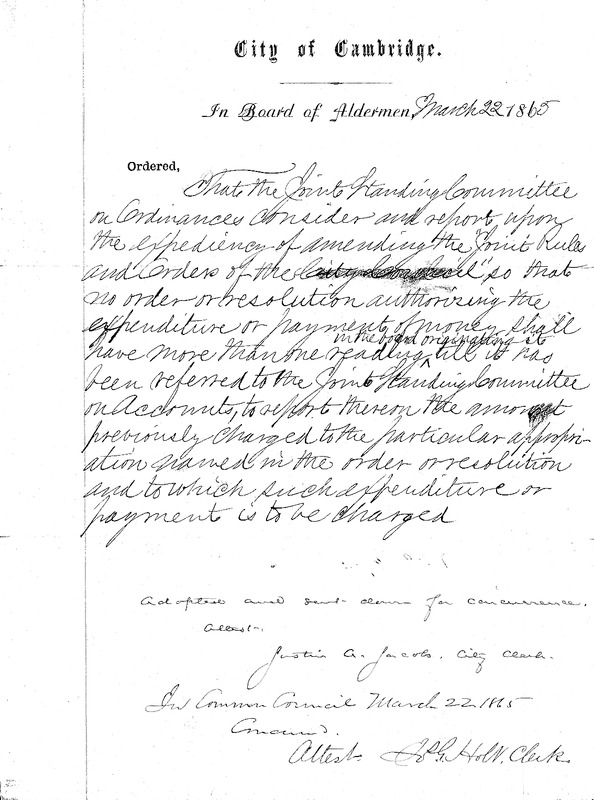 City of Cambridge.
In Board of Aldermen, March 22 1865
Ordered,
That the Joint Standing Committee
on Ordinances consider and report upon
the expediency of amending the "Joint Rules
and Orders of the City Council" so that
no order or resolution authorizing the
expenditure or payment of money shall
in the board originating it
have more than one reading, till it has
been referred to the Joint Standing Committee
on Accounts, to report thereon the amount
previously charged to the particular appropri-
ation named in the order or resolution
and to which such expenditure or
payment is to be charged
Adopted and sent down for concurrence.
Attest.
Justin A. Jacobs. City Clerk.
In Common Council March 22. 1865
Concurred.
Attest. Jos G. Holt. Clerk.